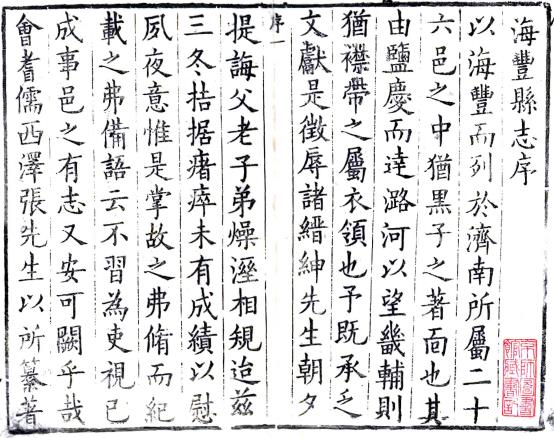 海豐縣志序
以海豐而列於濟南所屬二十
六邑之中猶黑子之著面也其
由鹽慶而達潞河以望畿輔則
猶襟帶之屬衣領也予既承乏
文獻是徵辱諸縉紳先生朝夕
序一
提誨父老子弟燥溼相規迨茲
三冬拮据瘏瘁未有成績以慰
夙夜意惟是掌故之弗脩而紀
載之弗備語云不習為吏視已
成事邑之有志又安可闕乎哉
會耆儒西澤張先生以所纂著